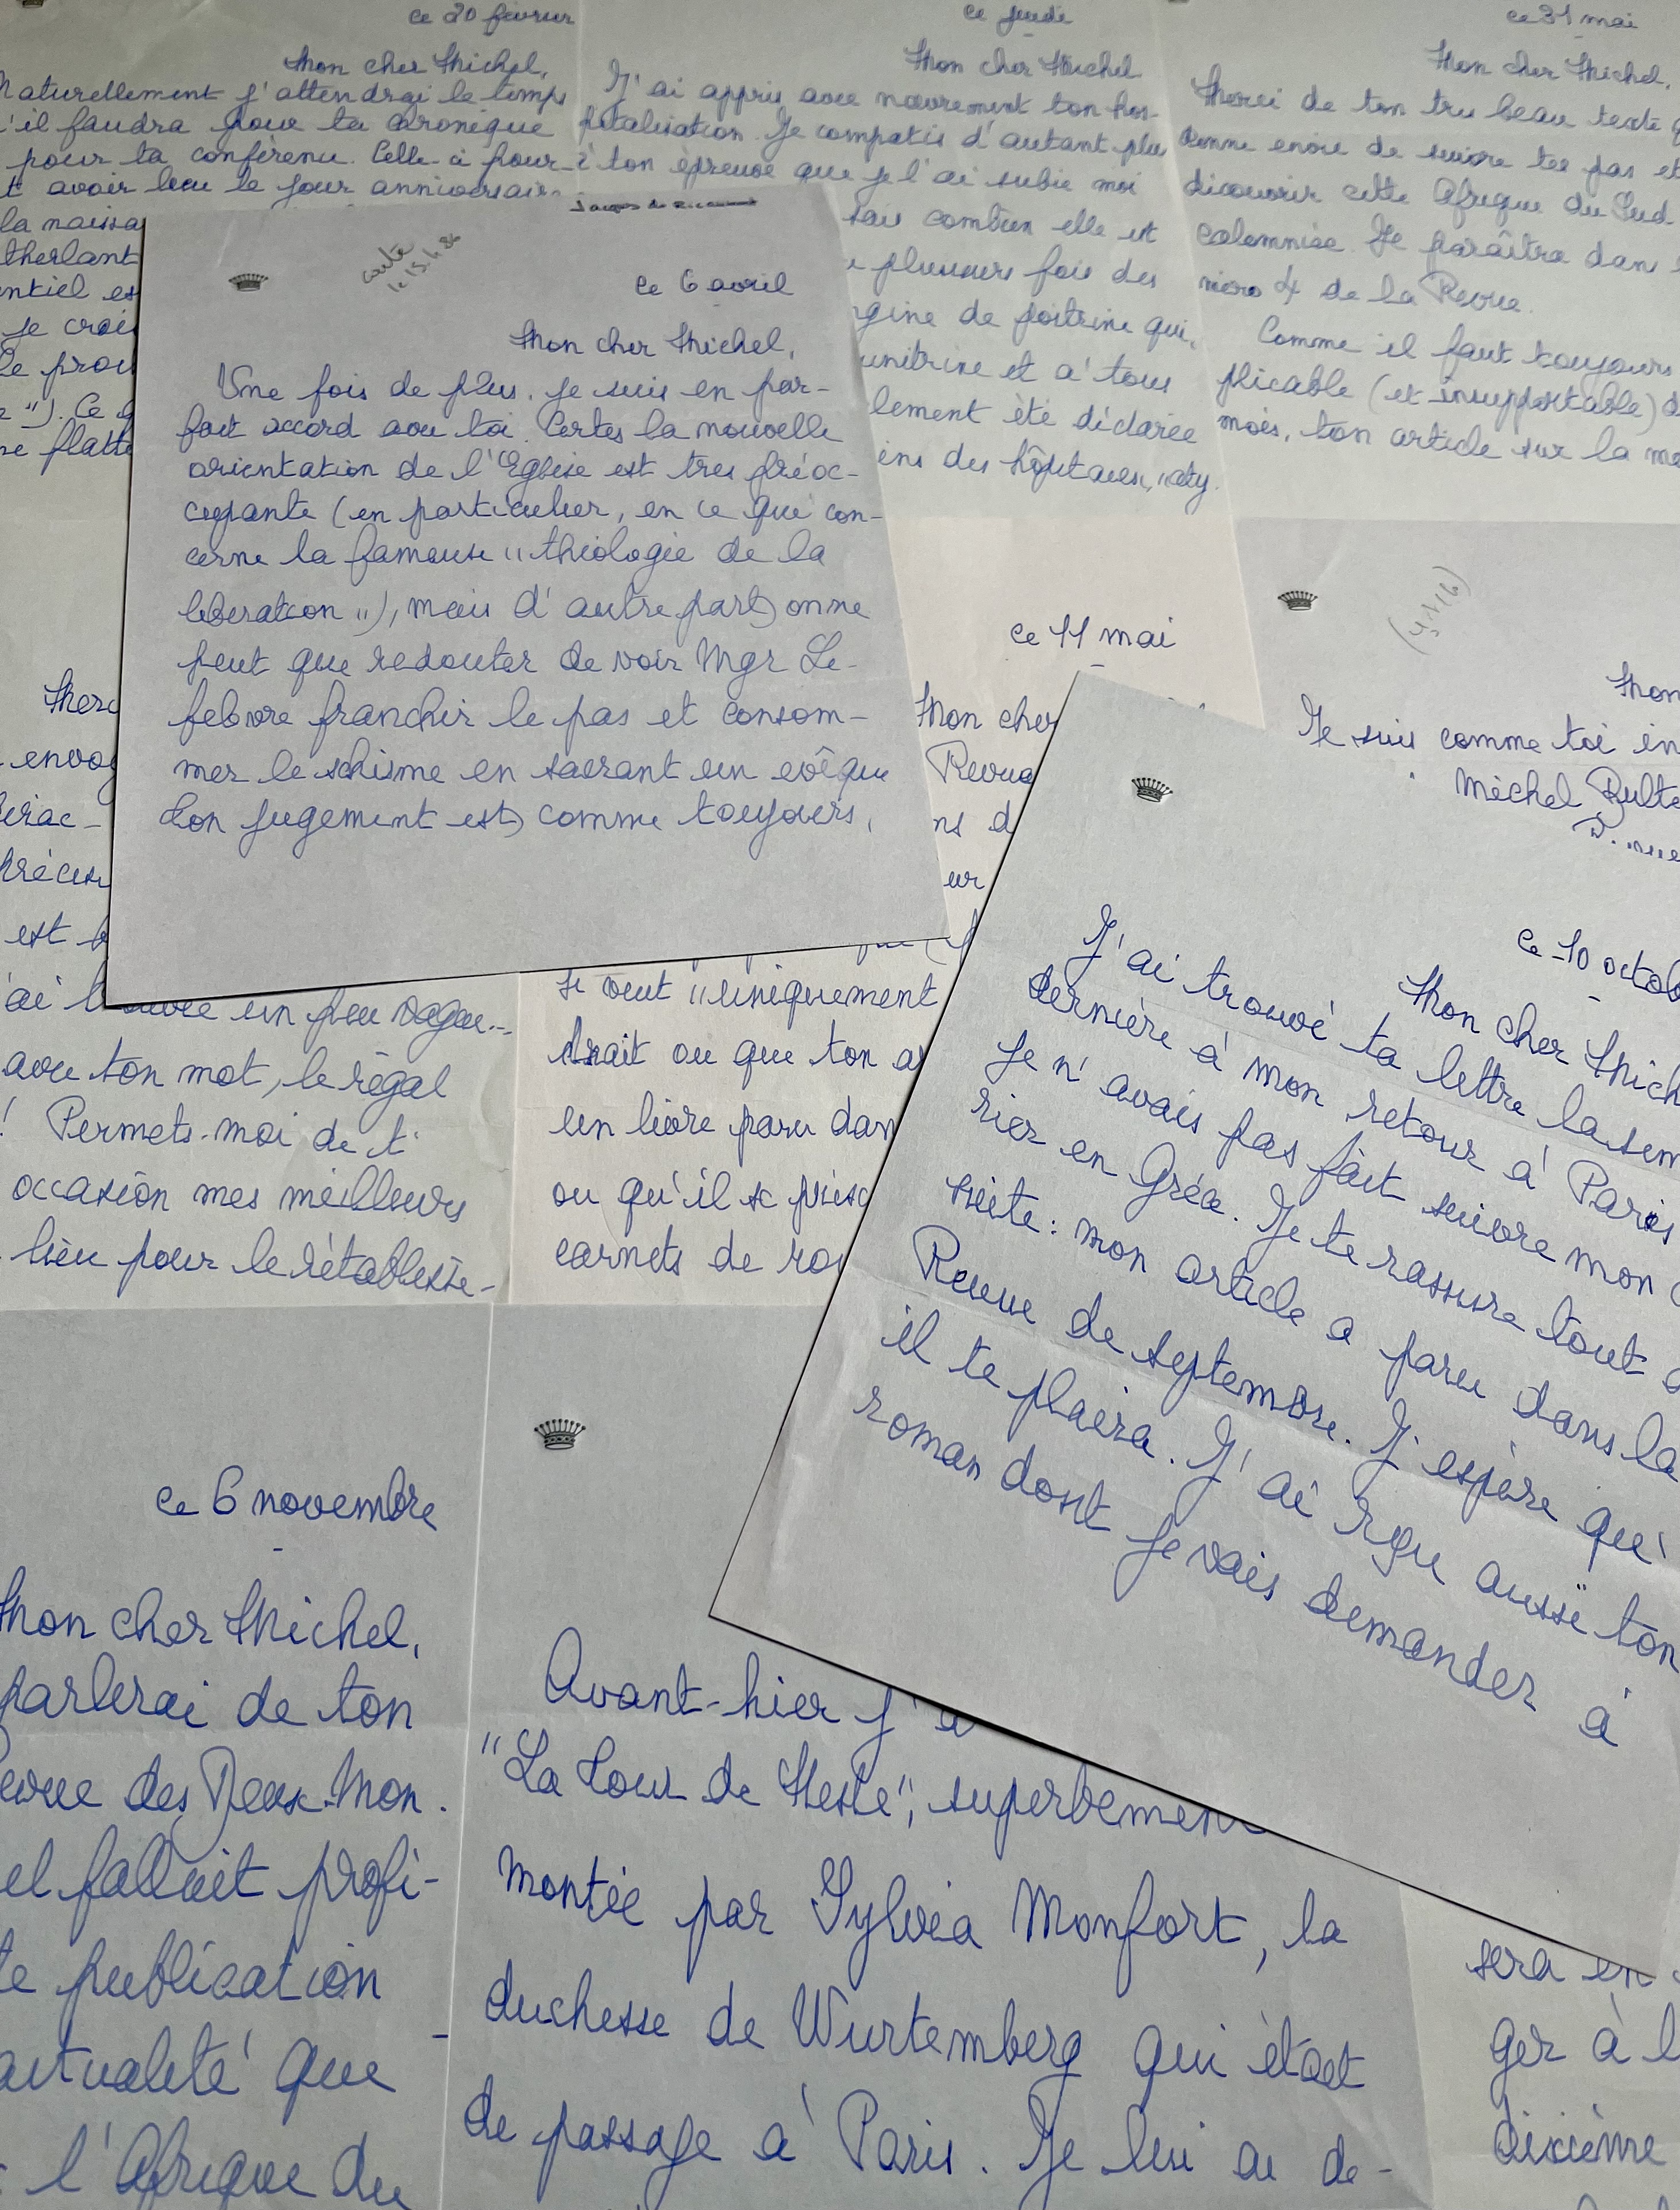 ce 20 février
Mon cher Michel,
Naturellement j'attendrai le temps
'il faudra pour ta chronique
pour ta conférence. Celle-ci pour-
t avoir lieu le jour anniversaire
la naissa
therlant
entiel es
je crois
le prou
"). Ce
ne flatte
ce jeudi
Mon cher Michel
J'ai appris avec navrement ton hos-
pitalisation. Je compatis d'autant plus
à ton épreuve que je l'ai subie moi
sais combien elle est
plusieurs fois des
ngine de poitrine qui,
unitrine et à tous
lement été déclarée
ens des hôpitaux, "aty.
ce 31 mai
Mon cher Michel,
Merci de ton très beau texte q
donne envie de suivre tes pas et
découvrir cette Afrique du Sud
calomniée. Il paraîtra dans l
méro 4 de la Revue.
Comme il faut toujours
plicable (et insupportable) d
mois, ton article sur la me
Jacques de Ricaumont
ce 6 avril
Mon cher Michel,
Une fois de plus, je suis en par-
fait accord avec toi. Certes la nouvelle
orientation de l'Eglise est très préoc-
cupante (en particulier, en ce qui con-
cerne la fameuse "théologie de la
libération"), mais d'autre part, on ne
peut que redouter de voir Mgr Le-
febvre franchir le pas et consom-
mer le schisme en sacrant un évêque
Ton jugement est, comme toujours,
Merc
envoy
érac-
précise
est b
'ai trouvée un peu vague...
avec ton mot, le régal
! Permets-moi de t'
occasion mes meilleurs
lieu pour le rétablisse-
ce 11 mai
Mon cher
Revue
ns d
ur
si veut "uniquement
drait ou que ton ar
un livre paru dans
ou qu'il se présc
carnets de rou
Mon
Je suis comme toi in
Michel Bulte
ce 10 octob
Mon cher Mich
J'ai trouvé ta lettre la sem
dernière à mon retour à Paris
je n'avais pas fait suivre mon c
rier en Grèce. Je te rassure tout d
suite : mon article a paru dans la
Revue de septembre. J'espère qu'
il te plaira. J'ai reçu aussi ton
roman dont je vais demander à
ce 6 novembre
Mon cher Michel,
parlerai de ton
evue des Deux-Mon.
il fallait profi-
te publication
actualité que
l'Afrique du
Avant-hier j'a
"La Tour de Nesle", superbement
montée par Sylvia Monfort, la
duchesse de Wurtemberg qui était
de passage à Paris. Je lui ai de-
sera en
ger à l
dixième